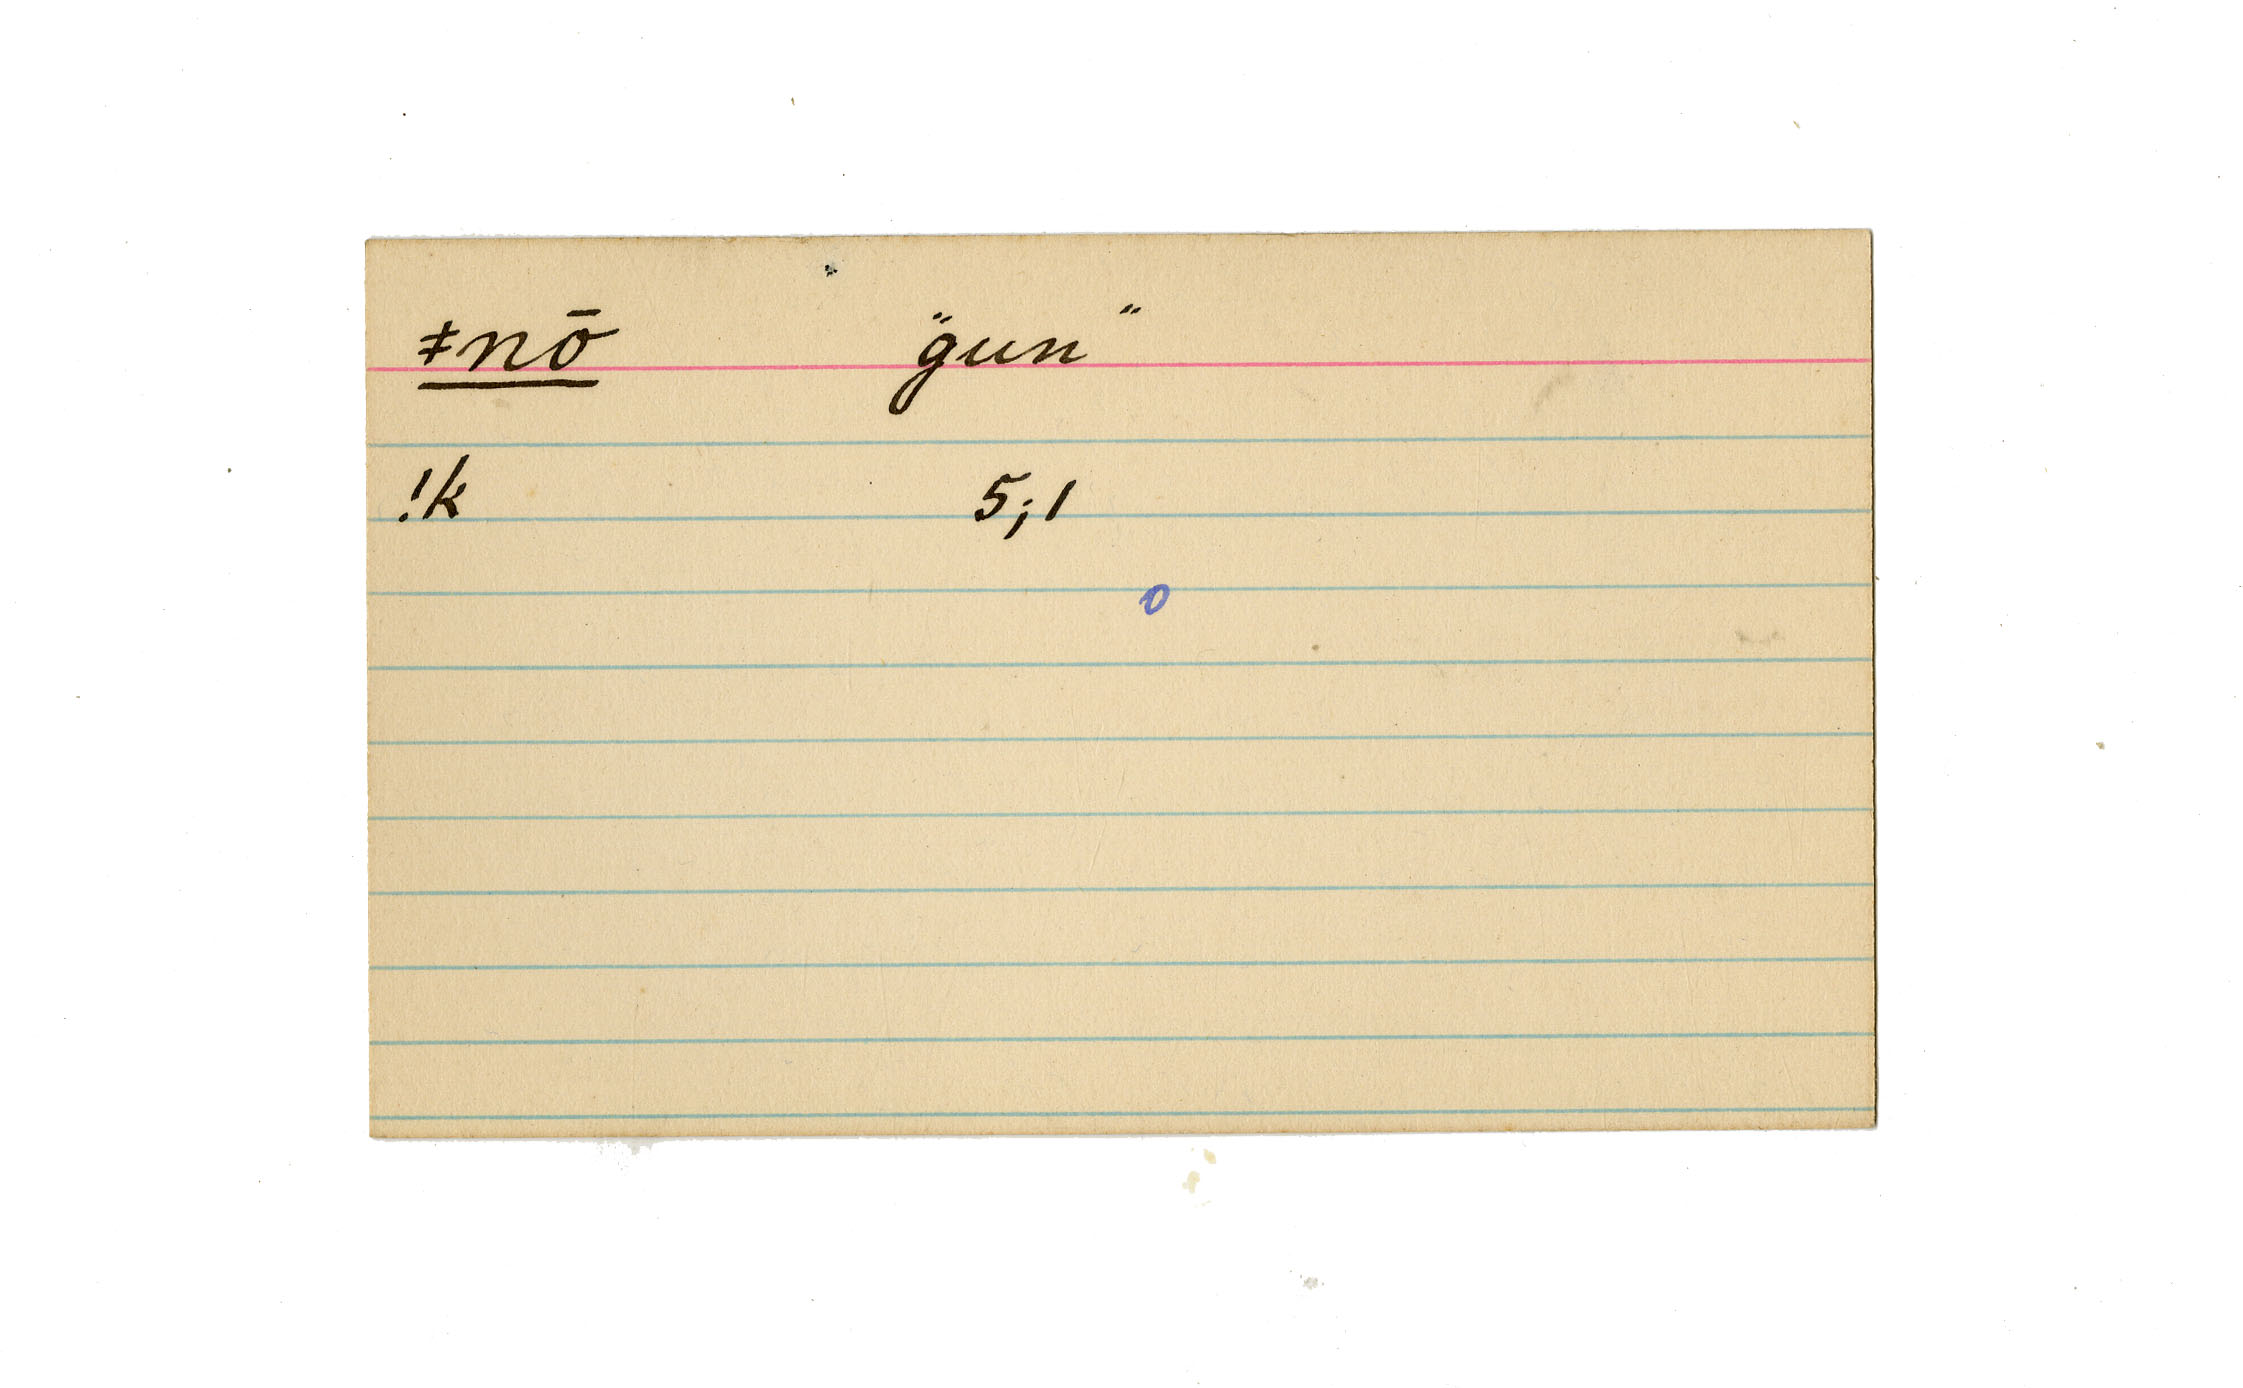 ǂnō "gun"
!k 5;1
o